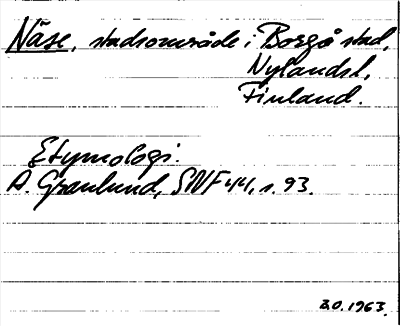 Näse, stadsområde i Borgå stad,
Nylandsl,
Finland.
Etymologi:
A. Granlund, SNF 44, s. 93.
30.1963.